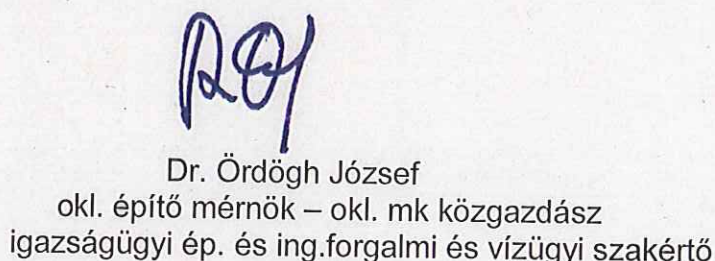 Dr. Ördögh József
okl. építő mérnök – okl. mk közgazdász
igazságügyi ép. és ing.forgalmi és vízügyi szakértő